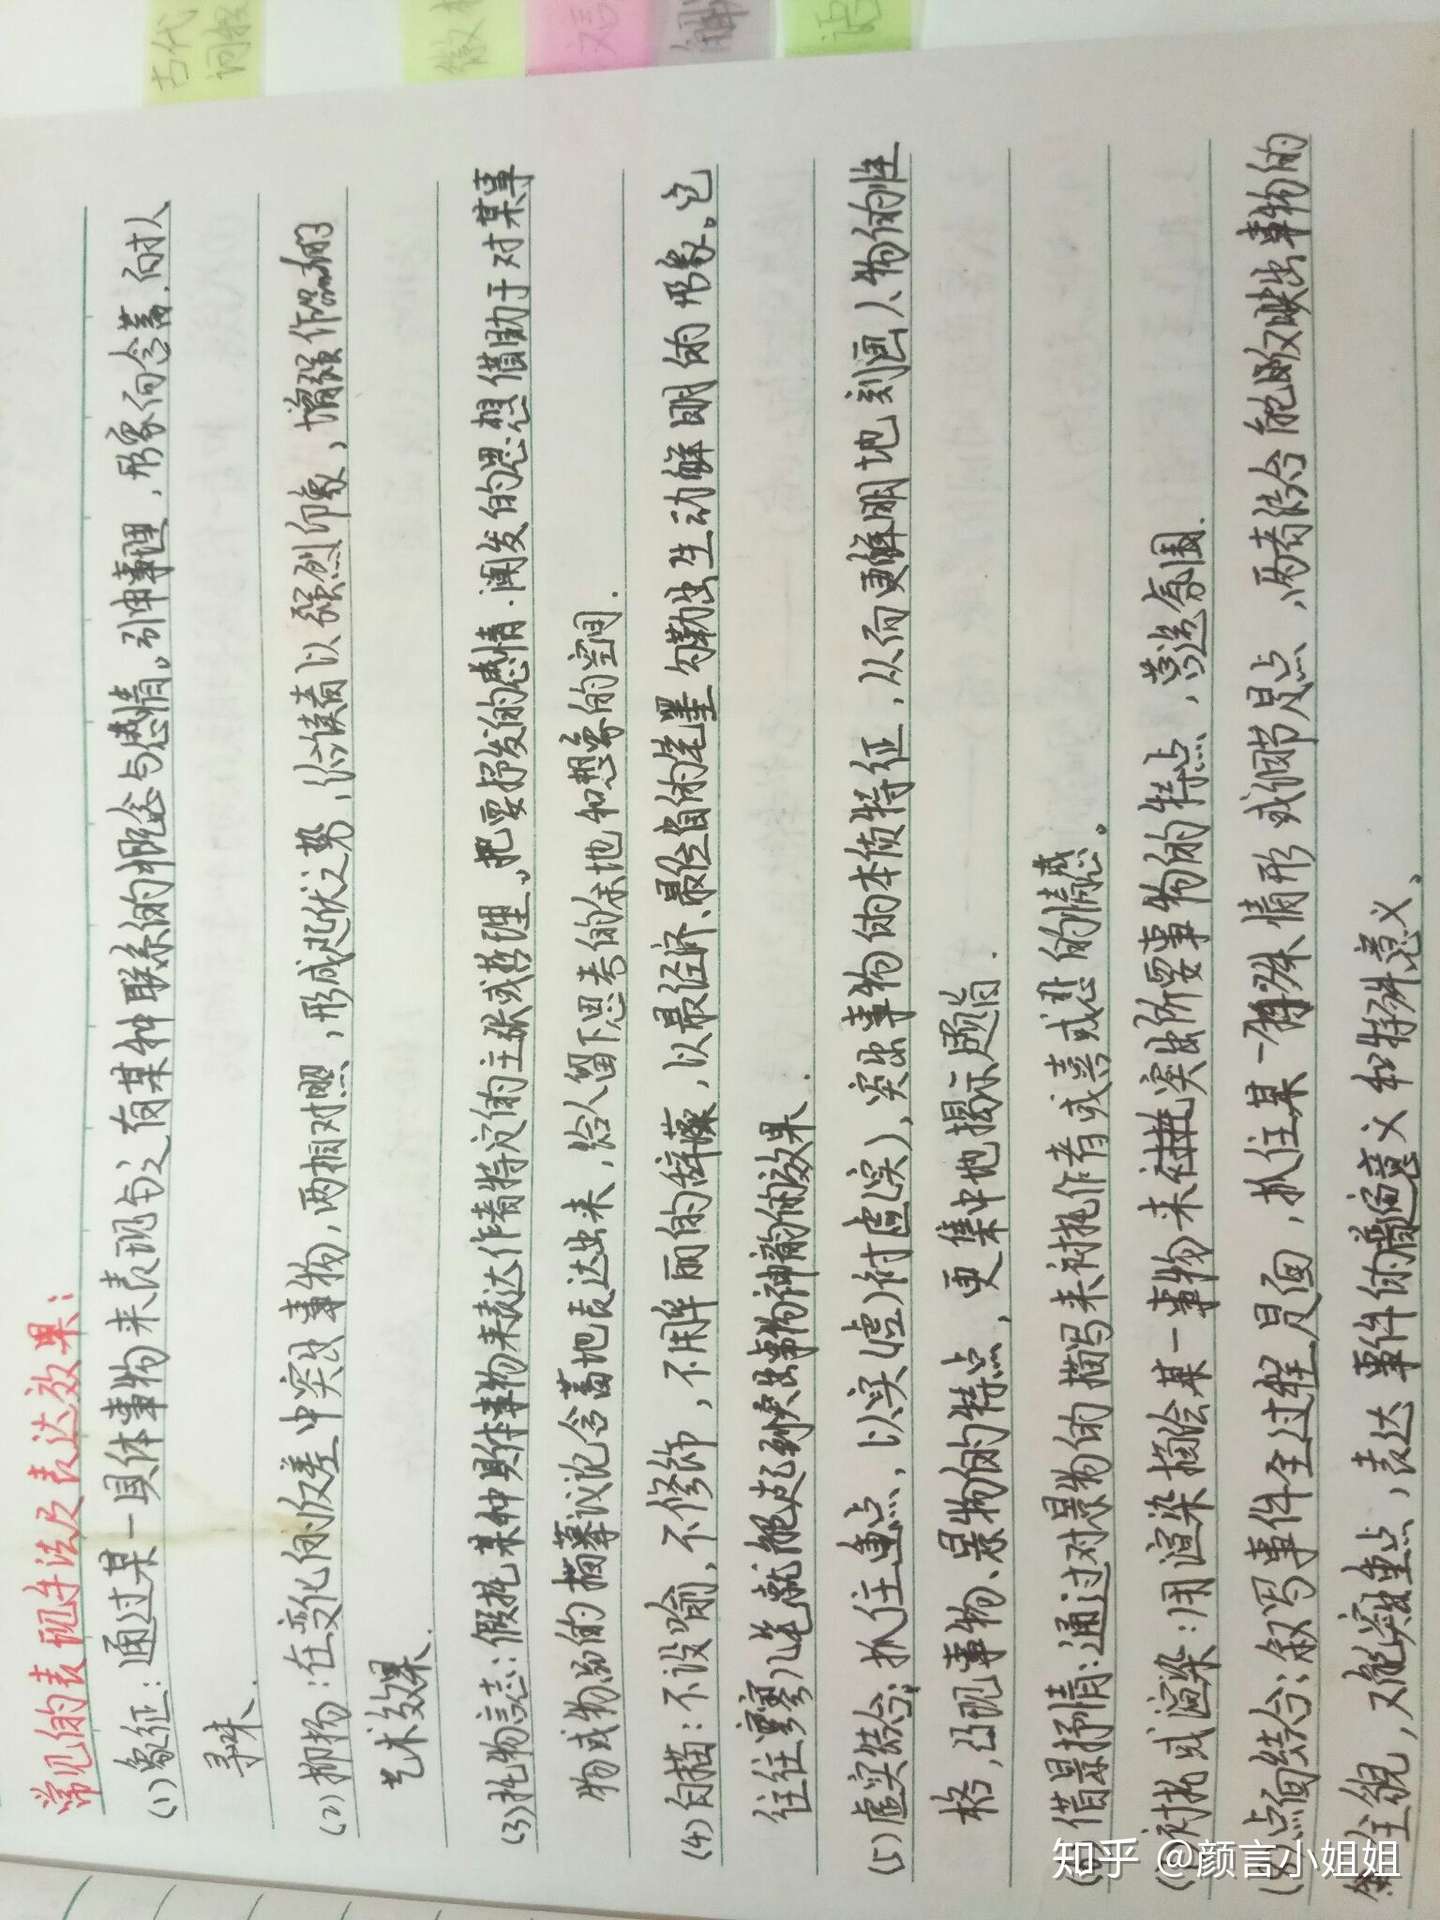 古代
词报
徽
文言
语
常见的表现手法及表达效果：
(1)象征：通过某一具体事物来表现与之有某种联系的概念与感情。引申事理，形象而含蓄，耐人
寻味.
(2)抑扬：在变化的反差中突出事物，两相对照，形成起伏之势，给读者以强烈印象，增强作品的
艺术效果.
(3)托物言志：假托某种具体事物来表达作者特定的主张或哲理。把要抒发的感情.阐发的思想借助于对某事
物或物品的描摹议论含蓄地表达出来，给人留下思考的余地和想象的空间.
(4)白描：不设喻，不修饰，不用华丽的辞藻，以最经济、最俭省的笔墨勾勒出生动鲜明的形象。它
往往寥寥几笔就能起到突出事物神韵的效果.
(5)虚实结合：抓住重点、以实(虚)衬虚(实)，突出事物的本质特征，从而更鲜明地刻画人物的性
格，凸现事物、景物的特点，更集中地揭示题旨.
借景抒情：通过对景物的描写来衬托作者或喜或悲的情感。
衬托或渲染：用渲染描绘某一事物来突出所要事物的特点，营造氛围.
点面结合：叙写事件全过程是面，抓住某一特殊情形或细节是点，两者结合能够反映出事物的
全貌，又能突出重点，表达事件的普遍意义和特殊意义。
知乎 @颜言小姐姐